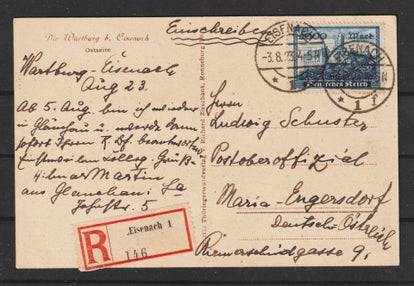 Die Wartburg b. Eisenach
Ostseite
Einschreiben
EISENACH
-3.8.23.4-5N
* 1
EISENACH
* 1 f
Mark
Deutsches Reich
Wartburg-Eisenach
Aug 23.
Ab 5. Aug. bin ich wieder
in Glauchau u. werde dann
sofort Ihren R. Bf. beantworten
4-bmar Martin
aus Glauchau Sa
5
Thüringerwaldverlag Richard Zieschank, Ronneburg
Herrn
Ludwig Schuster
Postoberoffizial
Maria-Engersdorf
Deutsch-Östreich
Riemerschmidgasse 9.
R
Eisenach 1
146